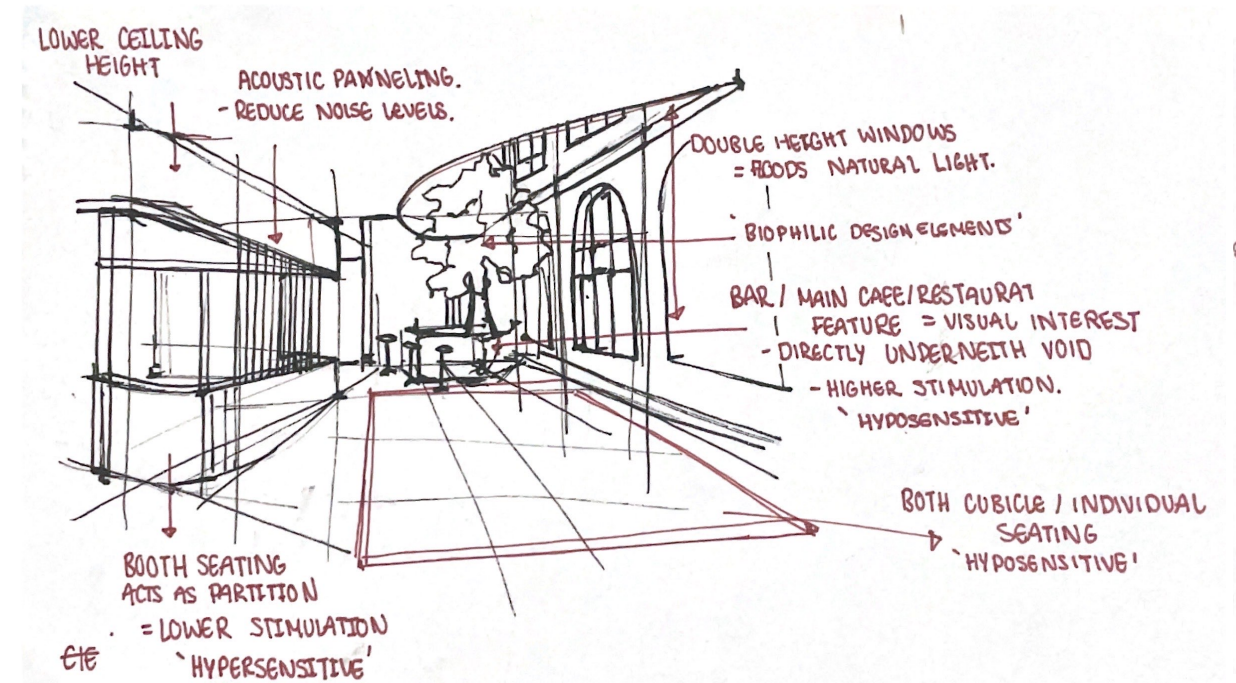 LOWER CEILING
HEIGHT
ACOUSTIC PANNELING.
- REDUCE NOISE LEVELS.
DOUBLE HEIGHT WINDOWS
= FLOODS NATURAL LIGHT.
'BIOPHILIC DESIGN ELEMENTS'
BAR / MAIN CAFE/RESTAURAT
FEATURE = VISUAL INTEREST
- DIRECTLY UNDERNEITH VOID
- HIGHER STIMULATION.
'HYPOSENSITIVE'
BOTH CUBICLE / INDIVIDUAL
SEATING
'HYPOSENSITIVE'
BOOTH SEATING
ACTS AS PARTITION
= LOWER STIMULATION
'HYPERSENSITIVE'